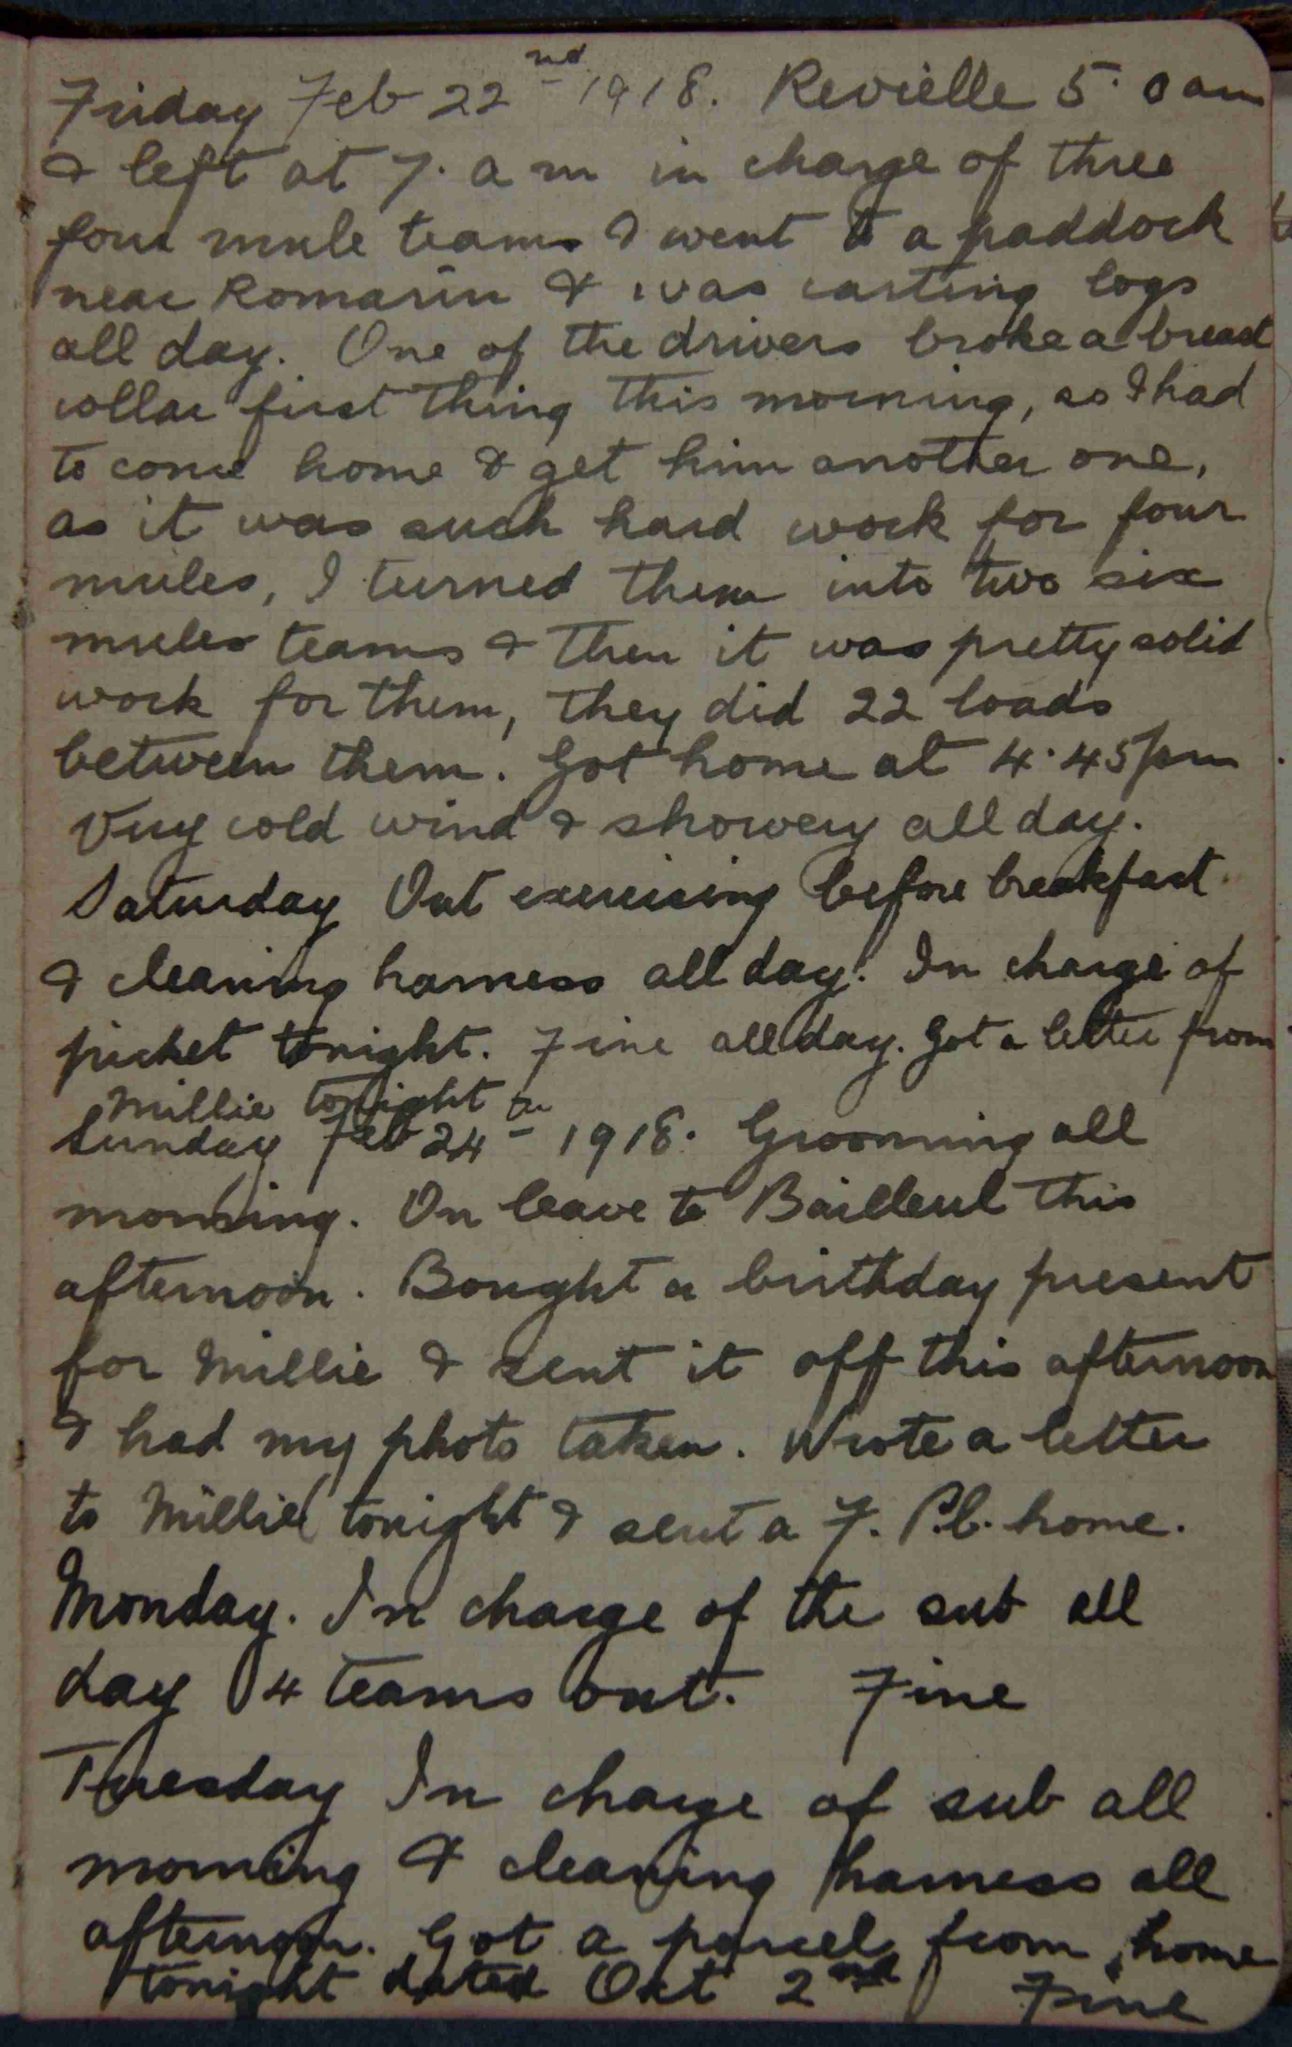 Friday Feb 22nd 1918. Revielle 5.0 am
& left at 7. a m in charge of three
four mule teams & went to a paddock
near Romarin & was carting logs
all day. One of the drivers broke a breast
collar first thing this morning, so I had
to come home & get him another one,
as it was such hard work for four
mules, I turned them into two six
mules teams & then it was pretty solid
work for them, they did 22 loads
between them. Got home at 4.45 pm
Very cold wind & showery all day.
Saturday Out exercising before breakfast
& cleaning harness all day. In charge of
picket tonight. Fine all day. Got a letter from
Millie tonight
Sunday Feb 24th 1918. Grooming all
morning. On leave to Bailleul this
afternoon. Bought a birthday present
for Millie & sent it off this afternoon
& had my photo taken. Wrote a letter
to Millie tonight & sent a F. P.C. home.
Monday. In charge of the sub all
day 4 teams out. Fine
Tuesday In charge of sub all
morning & cleaning harness all
afternoon. Got a parcel from home
tonight dated Oct 2nd Fine